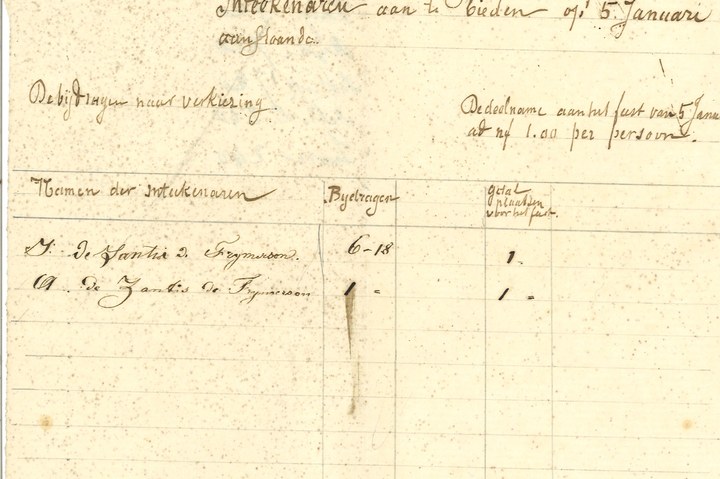 Inteekenaren aan te bieden op 5 Januari
aanstaande.
De bijdragen naar verkiezing.
De deelname aan het feest van 5 Janu
ad ƒ 1.00 per persoon.
Namen der inteekenaren
Bijdragen
getal
plaatsen
voor het feest.
J. de Zantis de Frymerson.
6-18
1.
A. de Zantis de Frymerson
1 "
1 "